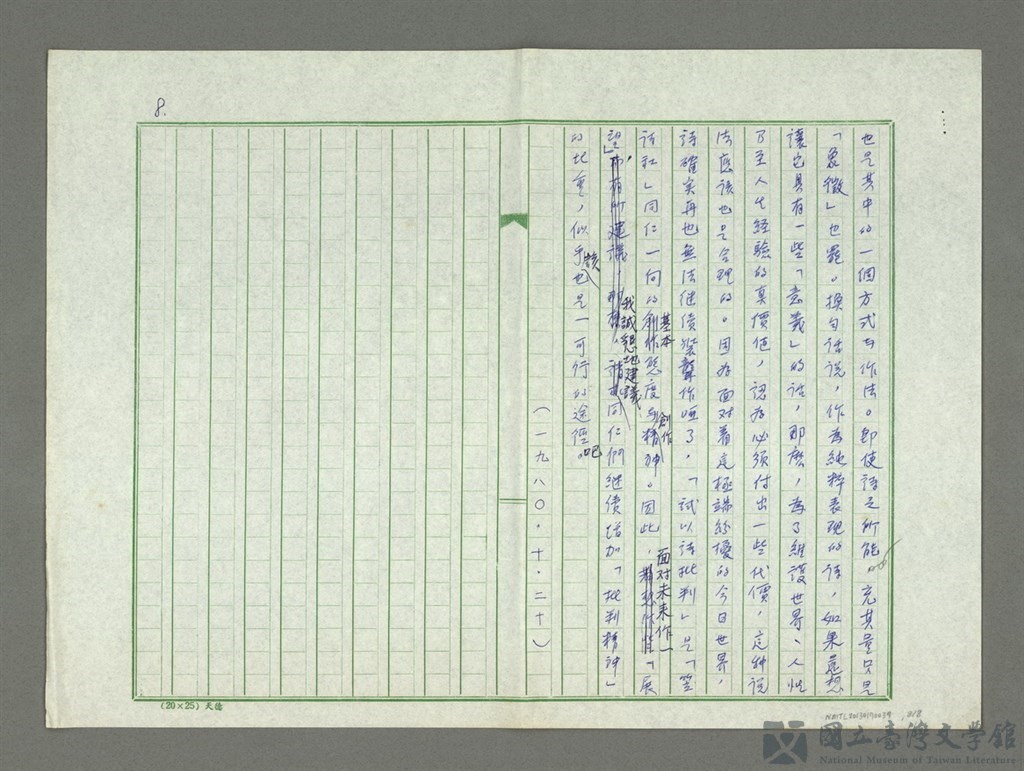 8.
也是其中的一個方式与作法。即使詩之所能，充其量只是
「象徵」也罷。換句话说，作為純粹表現的诗，如果意想
讓它具有一些「意義」的话，那麽，為了維護世界、人性
乃至人生経驗的真價值，認為必须付出一些代價，这种说
法应该也是合理的。因為面对着这極端紛擾的今日世界，
詩確实再也無法继续裝聾作啞了，「試以诗批判」是「笠
诗社」同仁一向的基本創作態度与精神。因此，面对未来作一「展
望」，我誠懇地建議同仁們继续增加「批判精神」
的比重，似乎該是一可行的途徑吧。
（一九八〇·十·二十）
(20×25) 天德
國立臺灣文學館
National Museum of Taiwan Literature